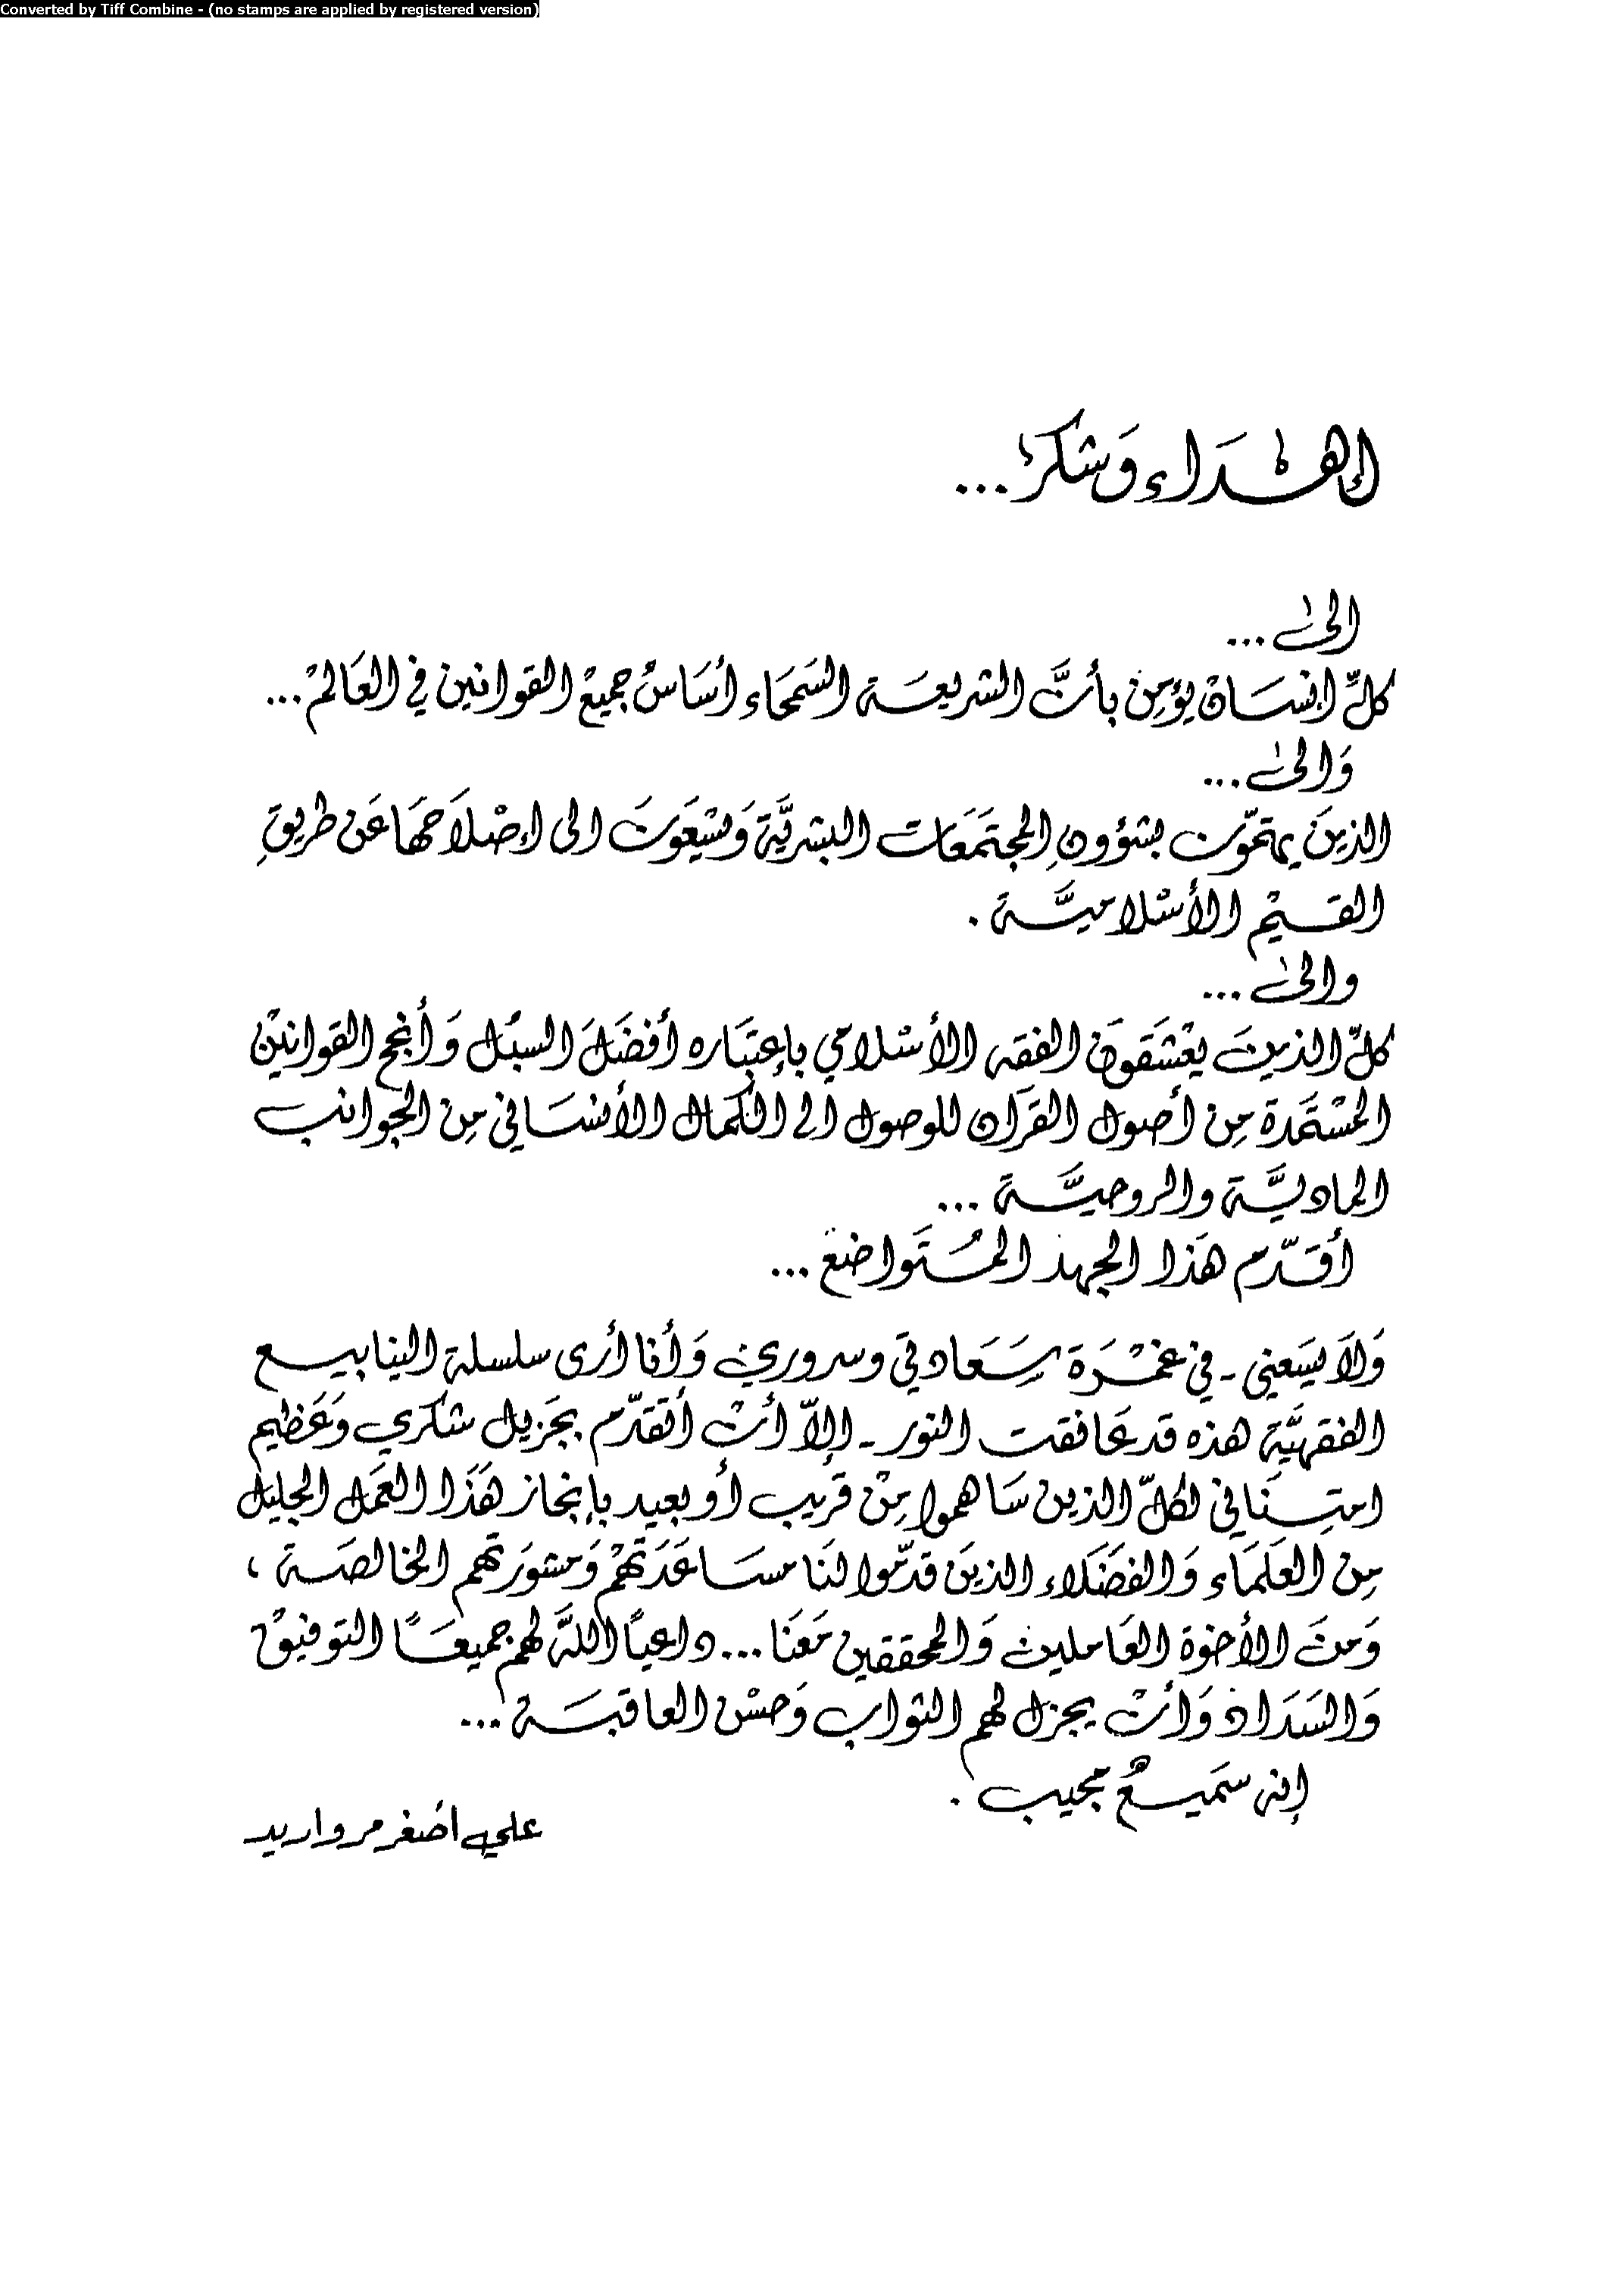 Converted by Tiff Combine - (no stamps are applied by registered version)
إهداء وَشكر ...
الى ...
كلّ انسَان يؤمِن بأنَّ الشريعَة السَمحَاء أسَاسُ جميعْ القوانين في العَالمْ ...
وَالى ...
الذينَ يهتمّون بشؤونِ المجتمَعَات البشريَّة وَيسْعَونَ الى إصْلاَحهَا عَن طريقِ
القيمْ الأسْلاميَّة .
والى ...
كلّ الذينَ يعْشَقونَ الفقه الأسْلامي بإعتبَاره أفضَلَ السبُل وَأنجح القوانينْ
المسْتمَدة مِن أصول القرآن للوصول الى الكمال الأنسَاني مِن الجوانب
الماديَّة والروحيَّة ...
أقدّم هَذا الجهد المُتَواضع ...
وَلاَ يسَعني - في غمْرَة سَعَادتي وسروري وَأنا أرى سلسلة الينابيع
الفقهيَّة هذه قد عَانقت النور - إلاّ أنْ أتقدّم بجَزيل شكري وَعَظيم
امتِنَاني لكلّ الذين سَاهموا مِنْ قريب أو بعيد بإنجاز هَذَا العَمل الجليل
مِن العلمَاء وَالفضَلاء الذينَ قدّموا لنَا مسَاعَدَتهمْ وَمشورَتهم الخالصَة ،
وَمنَ الأخوة العَاملين وَالمحققين مَعَنا ... داعياً اللّهَ لهم جميعَاً التوفيقْ
وَالسَدَاد وَأنْ يجزل لهم الثواب وَحسْن العاقبَة ...
إنه سَميعٌ مجيب .
علي أصغر مرواريد